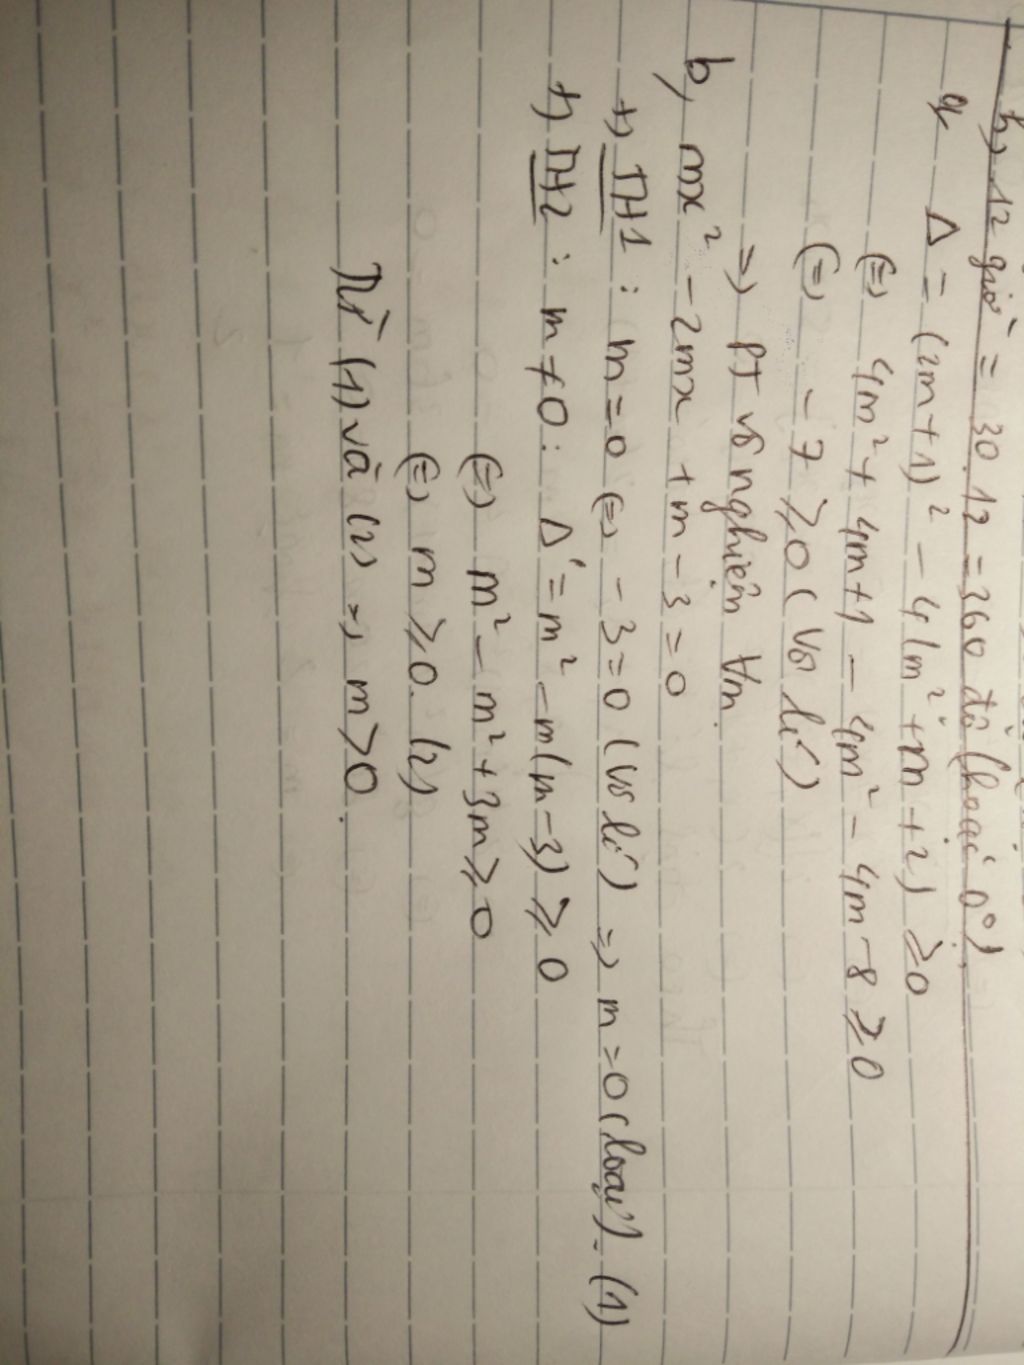 h, 12 giờ = 30.12 = 360 độ (hoặc 0°).
a, Δ = (2m+1)² - 4(m²+m+2) ≥0
(=) 4m² + 4m+1 - 4m² - 4m - 8 ≥0
(=) - 7 ≥0 (vô lí)
=) PT vô nghiệm ∀m.
b, mx² - 2mx + m - 3 = 0
+) TH1 : m = 0 (=) - 3 = 0 (vô lí) =) m = 0 (loại). (1)
+) TH2 : m ≠ 0 : Δ' = m² - m(m-3) ≥ 0
(=) m² - m² + 3m ≥ 0
(=) m ≥0. (2)
Từ (1) và (2) =) m >0.